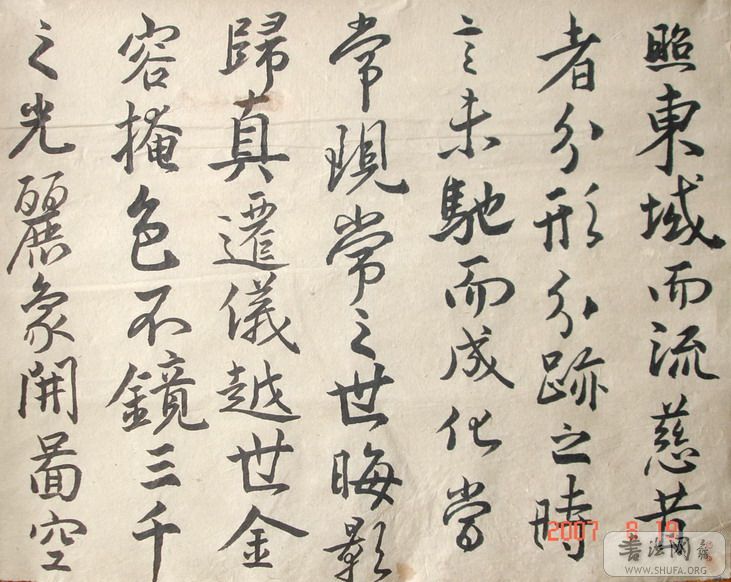 照東域而流慈昔
者分形分跡之時
言未馳而成化當
常現常之世晦影
歸真遷儀越世金
容掩色不鏡三千
之光麗象開圖空
2007 8 19
書法网
WWW.SHUFA.ORG